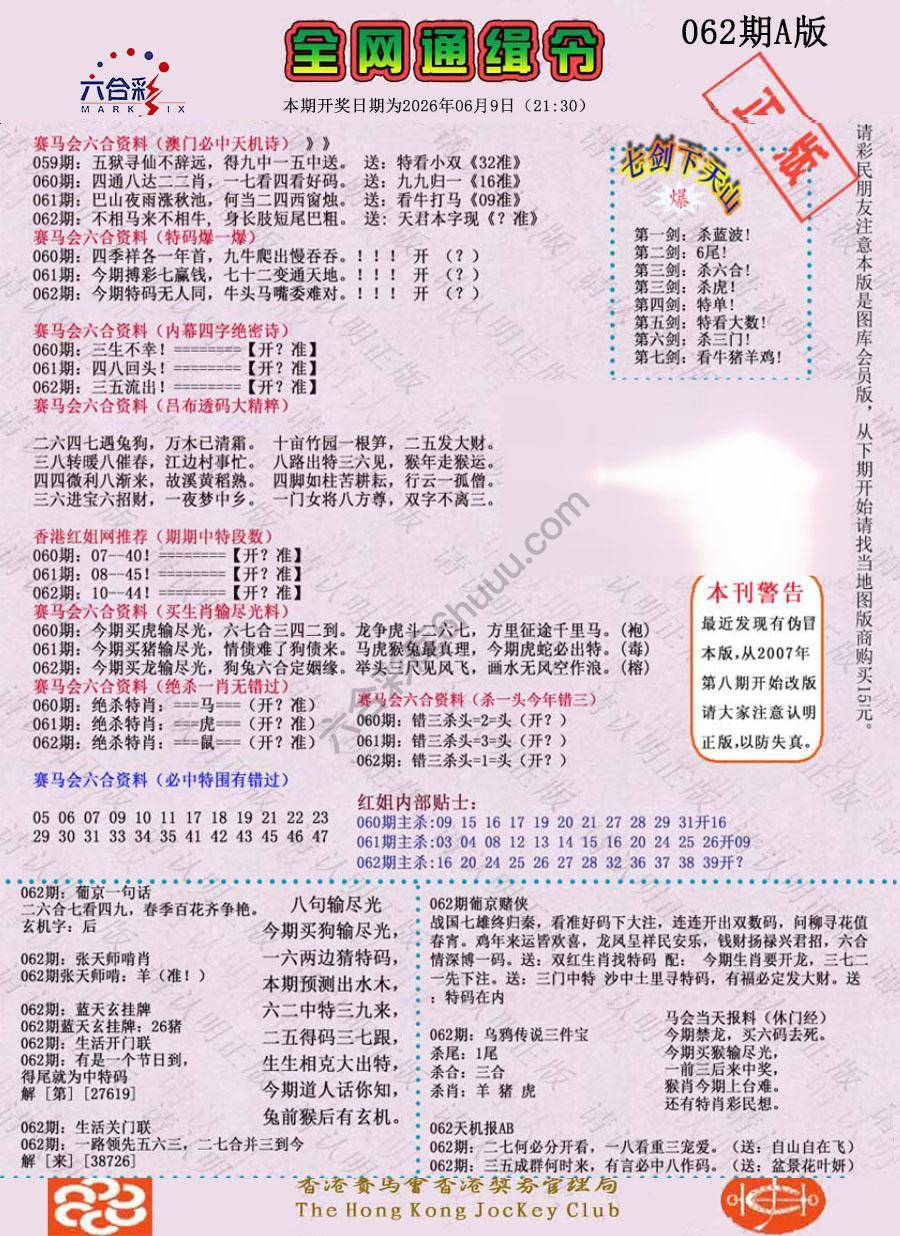 062期A版
全网通缉令
六合彩
MARK SIX
本期开奖日期为2026年06月9日（21:30）
正版
赛马会六合资料（澳门必中天机诗）》》
059期：五狱寻仙不辞远，得九中一五中送。 送：特看小双《32准》
060期：四通八达二二肖，一七看四看好码。 送：九九归一《16准》
061期：巴山夜雨涨秋池，何当二四西窗烛。 送：看牛打马《09准》
062期：不相马来不相牛，身长肢短尾巴粗。 送：天君本字现《？准》
赛马会六合资料（特码爆一爆）
060期：四季祥各一年首，九牛爬出慢吞吞。！！！ 开 （？）
061期：今期搏彩七赢钱，七十二变通天地。！！！ 开 （？）
062期：今期特码无人同，牛头马嘴委难对。！！！ 开 （？）
七剑下天山
爆
第一剑：杀蓝波！
第二剑：6尾！
第三剑：杀六合！
第三剑：杀虎！
第四剑：特单！
第五剑：特看大数！
第六剑：杀三门！
第七剑：看牛猪羊鸡！
请彩民朋友注意本版是图库会员版，从下期开始请找当地图版商购买15元。
赛马会六合资料（内幕四字绝密诗）
060期：三生不幸！========【开？准】
061期：四八回头！========【开？准】
062期：三五流出！========【开？准】
赛马会六合资料（吕布透码大精粹）
二六四七遇兔狗，万木已清霜。 十亩竹园一根笋，二五发大财。
三八转暖八催春，江边村事忙。 八路出特三六见，猴年走猴运。
四四微利八渐来，故溪黄稻熟。 四脚如柱苦耕耘，行云一孤僧。
三六进宝六招财，一夜梦中乡。 一门女将八方尊，双字不离三。
香港红姐网推荐（期期中特段数）
060期：07--40！========【开？准】
061期：08--45！========【开？准】
062期：10--44！========【开？准】
赛马会六合资料（买生肖输尽光料）
060期：今期买虎输尽光，六七合三四二到。龙争虎斗二六七，方里征途千里马。(袍)
061期：今期买猪输尽光，情债难了狗债来。马虎猴兔最真理，今期虎蛇必出特。(毒)
062期：今期买龙输尽光，狗兔六合定姻缘。举头三尺见风飞，画水无风空作浪。(榕)
本刊警告
最近发现有伪冒
本版,从2007年
第八期开始改版
请大家注意认明
正版,以防失真。
赛马会六合资料（绝杀一肖无错过）
060期：绝杀特肖：===马===（开？准）
061期：绝杀特肖：===虎===（开？准）
062期：绝杀特肖：===鼠===（开？准）
赛马会六合资料（杀一头今年错三）
060期：错三杀头=2=头（开？）
061期：错三杀头=3=头（开？）
062期：错三杀头=1=头（开？）
赛马会六合资料（必中特围有错过）
05 06 07 09 10 11 17 18 19 21 22 23
29 30 31 33 34 35 41 42 43 45 46 47
红姐内部贴士：
060期主杀:09 15 16 17 19 20 21 27 28 29 31开16
061期主杀:03 04 08 12 13 14 15 16 20 24 25 26开09
062期主杀:16 20 24 25 26 27 28 32 36 37 38 39开？
062期：葡京一句话
二六合七看四九，春季百花齐争艳。
玄机字：后
062期：张天师哨肖
062期张天师哨：羊（准！）
062期：蓝天玄挂牌
062期蓝天玄挂牌：26猪
062期：生活开门联
062期：有是一个节日到，
得尾就为中特码
解［第］[27619]
062期：生活关门联
062期：一路领先五六三，二七合并三到今
解［来］[38726]
八句输尽光
今期买狗输尽光，
一六两边猜特码，
本期预测出水木，
六二中特三九来，
二五得码三七跟，
生生相克大出特，
今期道人话你知，
兔前猴后有玄机。
062期葡京赌侠
战国七雄终归秦，看准好码下大注，连连开出双数码，问柳寻花值
春宵。鸡年来运皆欢喜，龙凤呈祥民安乐，钱财扬禄兴君招，六合
情深博一码。送：双红生肖找特码 配： 今期生肖要开龙，三七二
一先下注。送：三门中特 沙中土里寻特码，有福必定发大财。送
：特码在内
062期：乌鸦传说三件宝
杀尾：1尾
杀合：三合
杀肖：羊 猪 虎
马会当天报料（休门经）
今期禁龙，买六码去死。
今期买猴输尽光，
一前三后来中奖，
猴肖今期上台难。
还有特肖彩民想。
062天机报AB
062期：二七何必分开看，一八看重三宠爱。（送：自山自在飞）
062期：三五成群何时来，有言必中八作码。（送：盆景花叶妍）
香港赛马會香港獎券管理局
The Hong Kong JocKey Club